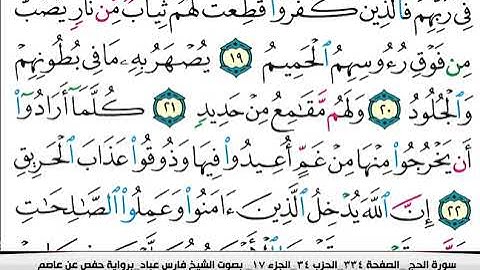 فِى رَبِّهِمْ فَٱلَّذِينَ كَفَرُوا۟ قُطِّعَتْ لَهُمْ ثِيَابٌ مِّن نَّارٍ يُصَبُّ
مِن فَوْقِ رُءُوسِهِمُ ٱلْحَمِيمُ ١٩ يُصْهَرُ بِهِۦ مَا فِى بُطُونِهِمْ
وَٱلْجُلُودُ ٢٠ وَلَهُم مَّقَٰمِعُ مِنْ حَدِيدٍ ٢١ كُلَّمَآ أَرَادُوٓا۟
أَن يَخْرُجُوا۟ مِنْهَا مِنْ غَمٍّ أُعِيدُوا۟ فِيهَا وَذُوقُوا۟ عَذَابَ ٱلْحَرِيقِ
٢٢ إِنَّ ٱللَّهَ يُدْخِلُ ٱلَّذِينَ ءَامَنُوا۟ وَعَمِلُوا۟ ٱلصَّٰلِحَٰتِ
سورة الحج _ الصفحة ٣٣٤_ الحزب ٣٤ _ الجزء ١٧ _ بصوت الشيخ فارس عباد_برواية حفص عن عاصم